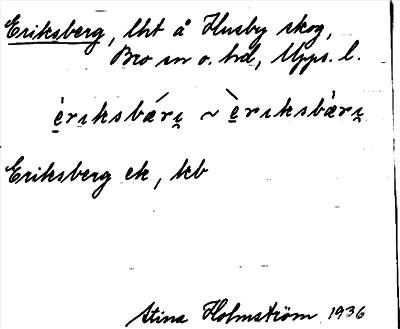 Eriksberg, lht å Husby skog,
Bro sn o. hd, Upps. l.
èrıksbǽrı̨ ~ èrıksbæ̀rı̨
Eriksberg ek, kb
Stina Holmström 1936